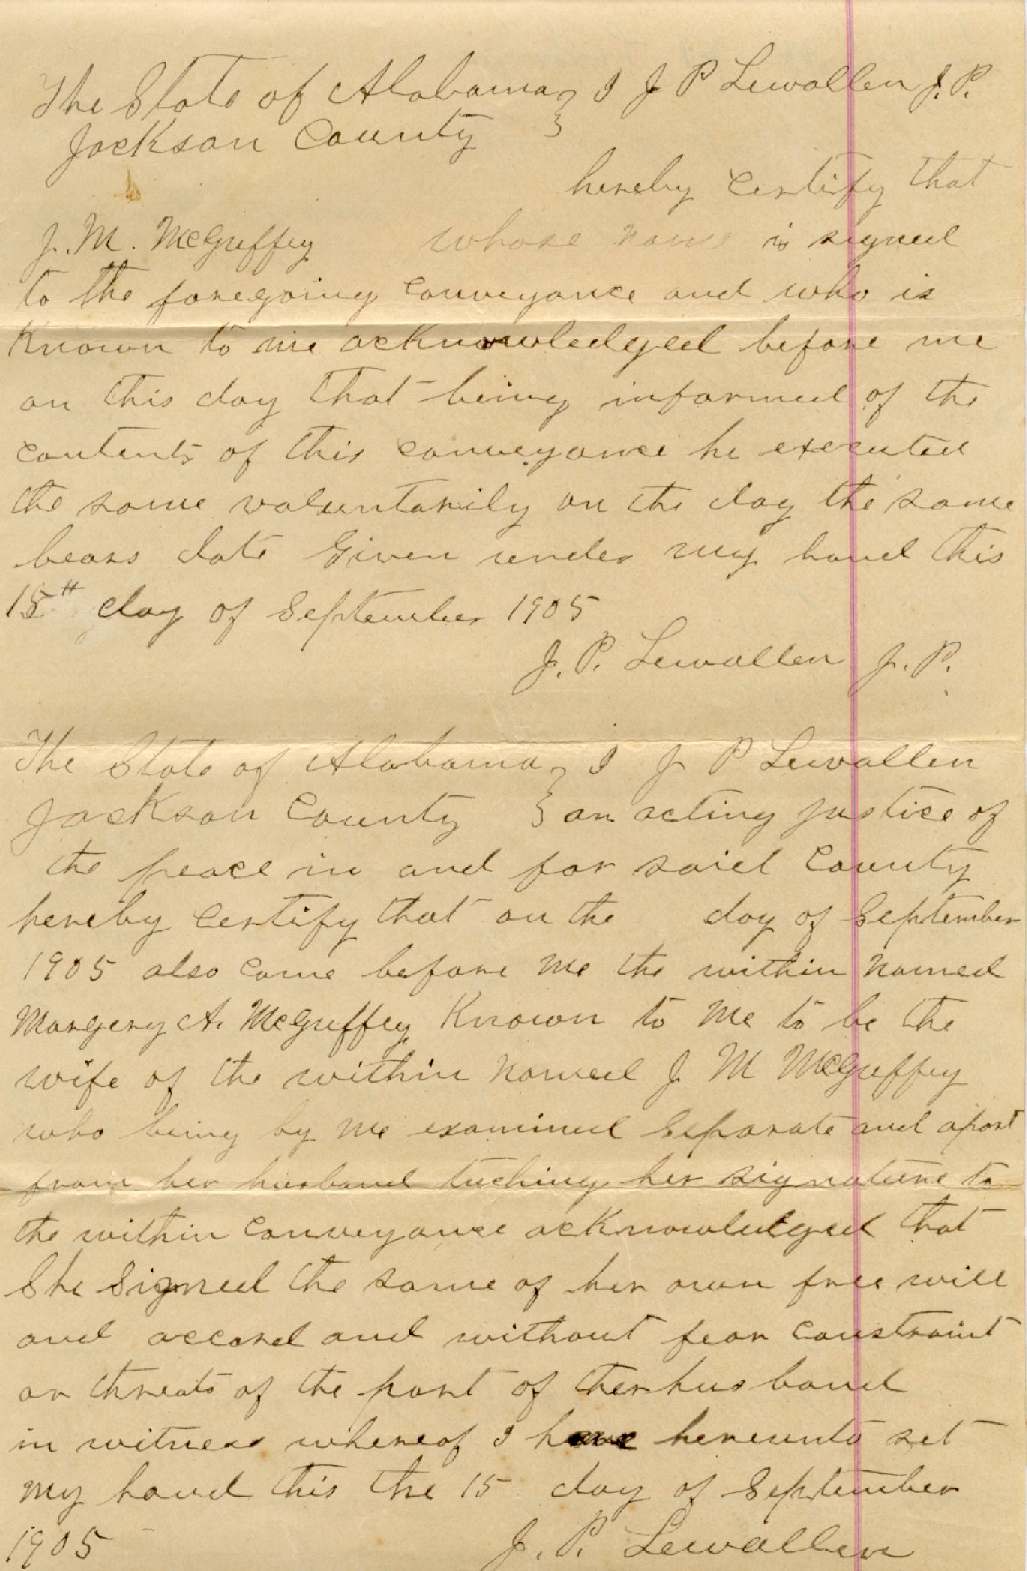 The State of Alabama } I J P Lewallen J. P.
Jackson County }
hereby certify that
J. M. McGuffey whose name is signed
to the foregoing conveyance and who is
Known to me acknowledged before me
on this day that being informed of the
contents of this conveyance he executed
the same voluntarily on the day the same
bears date Given under my hand this
15th day of September 1905
J. P. Lewallen J. P.
The State of Alabama } I J P Lewallen
Jackson County } an acting justice of
the peace in and for said County
hereby certify that on the day of September
1905 also came before me the within named
Margery A. McGuffey Known to me to be the
wife of the within named J M McGuffey
who being by me examined Separate and apart
from her husband tuching her signature to
the within conveyance acknowledged that
She Signed the same of her own free will
and accord and without fear constraint
or threats of the part of her husband
in witness whereof I have hereunto set
my hand this the 15 day of September
1905 J. P. Lewallen